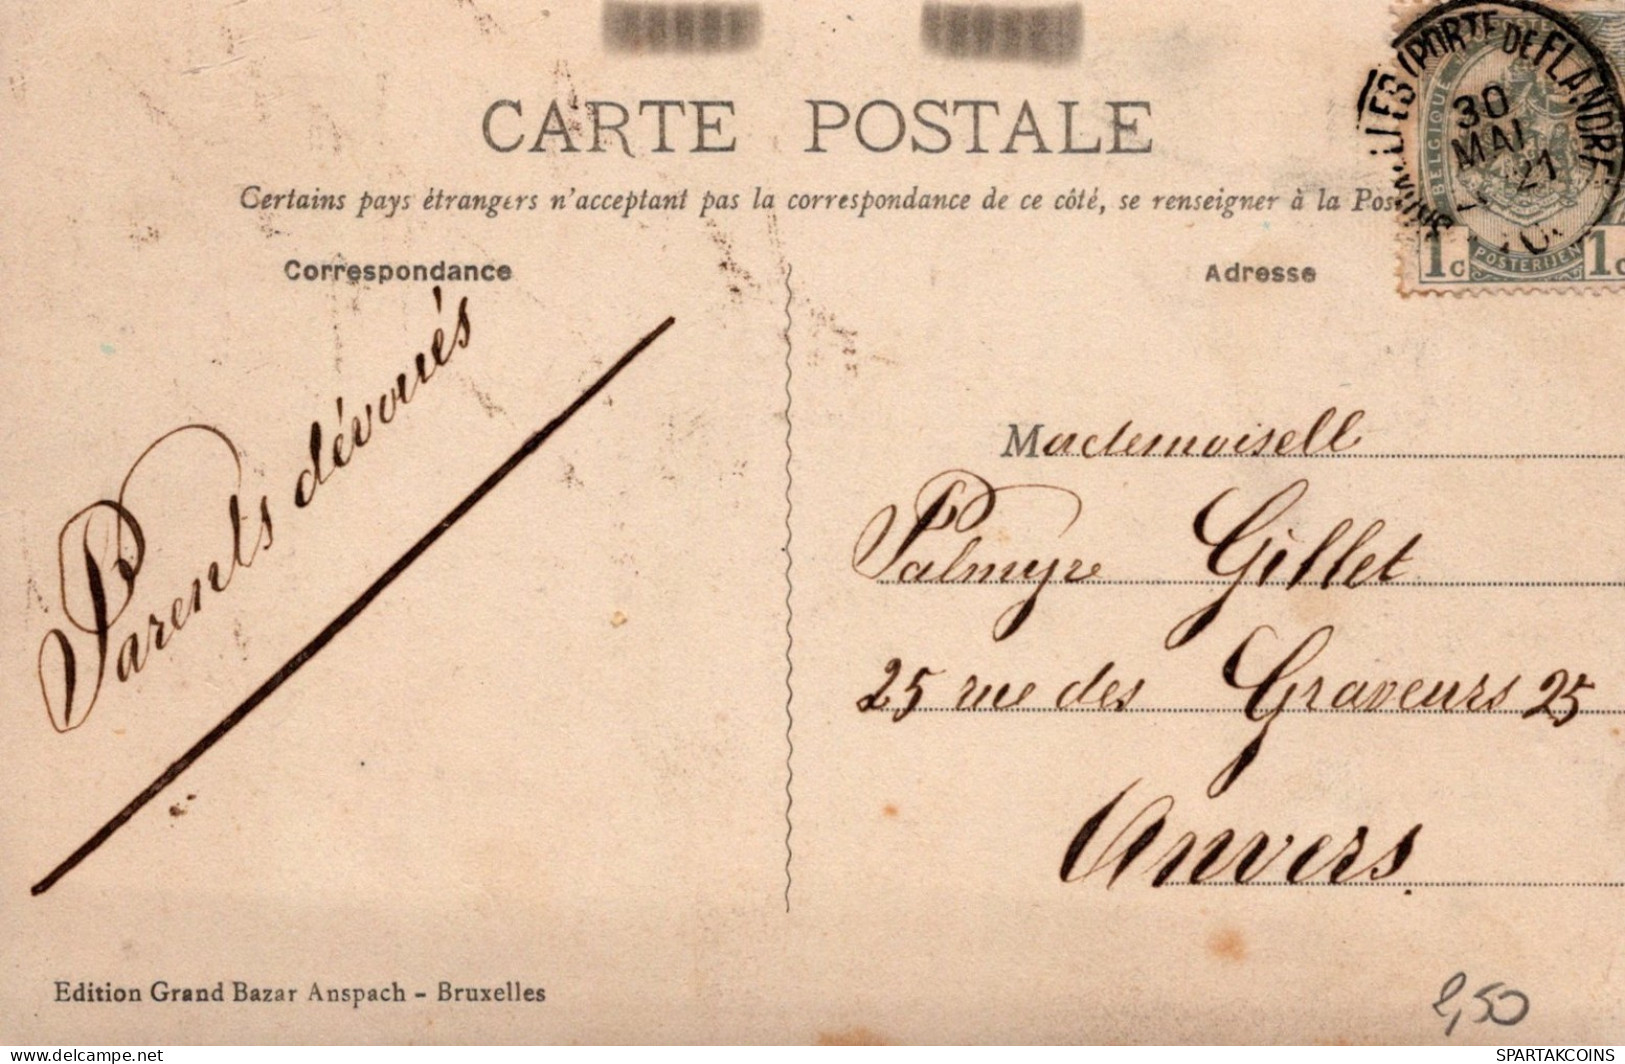 CARTE POSTALE
Certains pays étrangers n'acceptant pas la correspondance de ce côté, se renseigner à la Pos
BELGIQUE
POSTERIJEN
1c 1c
(PORTE DE FLANDRE)
30
MAI
21
Correspondance
Adresse
Parents dévoués
Mademoiselle
Palmyre Gillet
25 rue des Graveurs 25
Anvers.
Edition Grand Bazar Anspach - Bruxelles
2,50
SPARTAKCOINS
https://www.delcampe.net